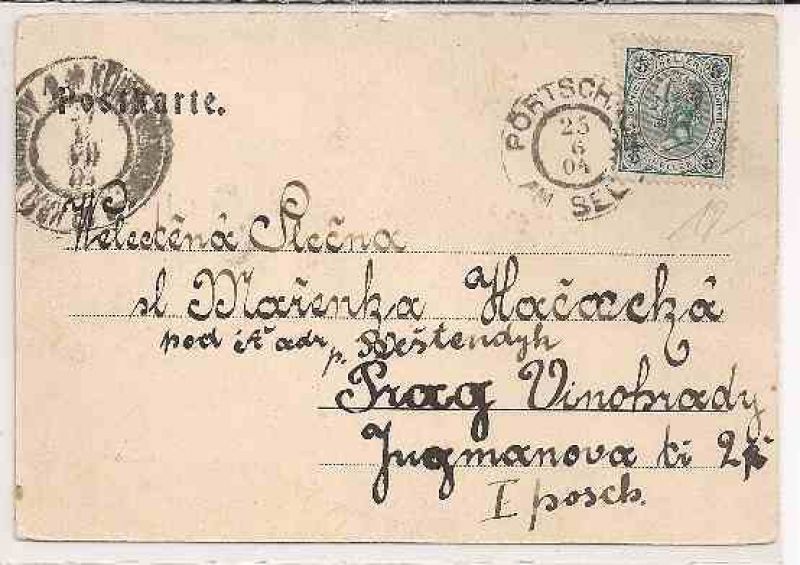 Postkarte.
PÖRTSCH
25
6
04
AM SEE
Velectěná Slečna
sl Mařenka Hačacká
pod čí adr p. Beštendyh
Prag Vinohrady
Jugmanova ti 2
I posch.